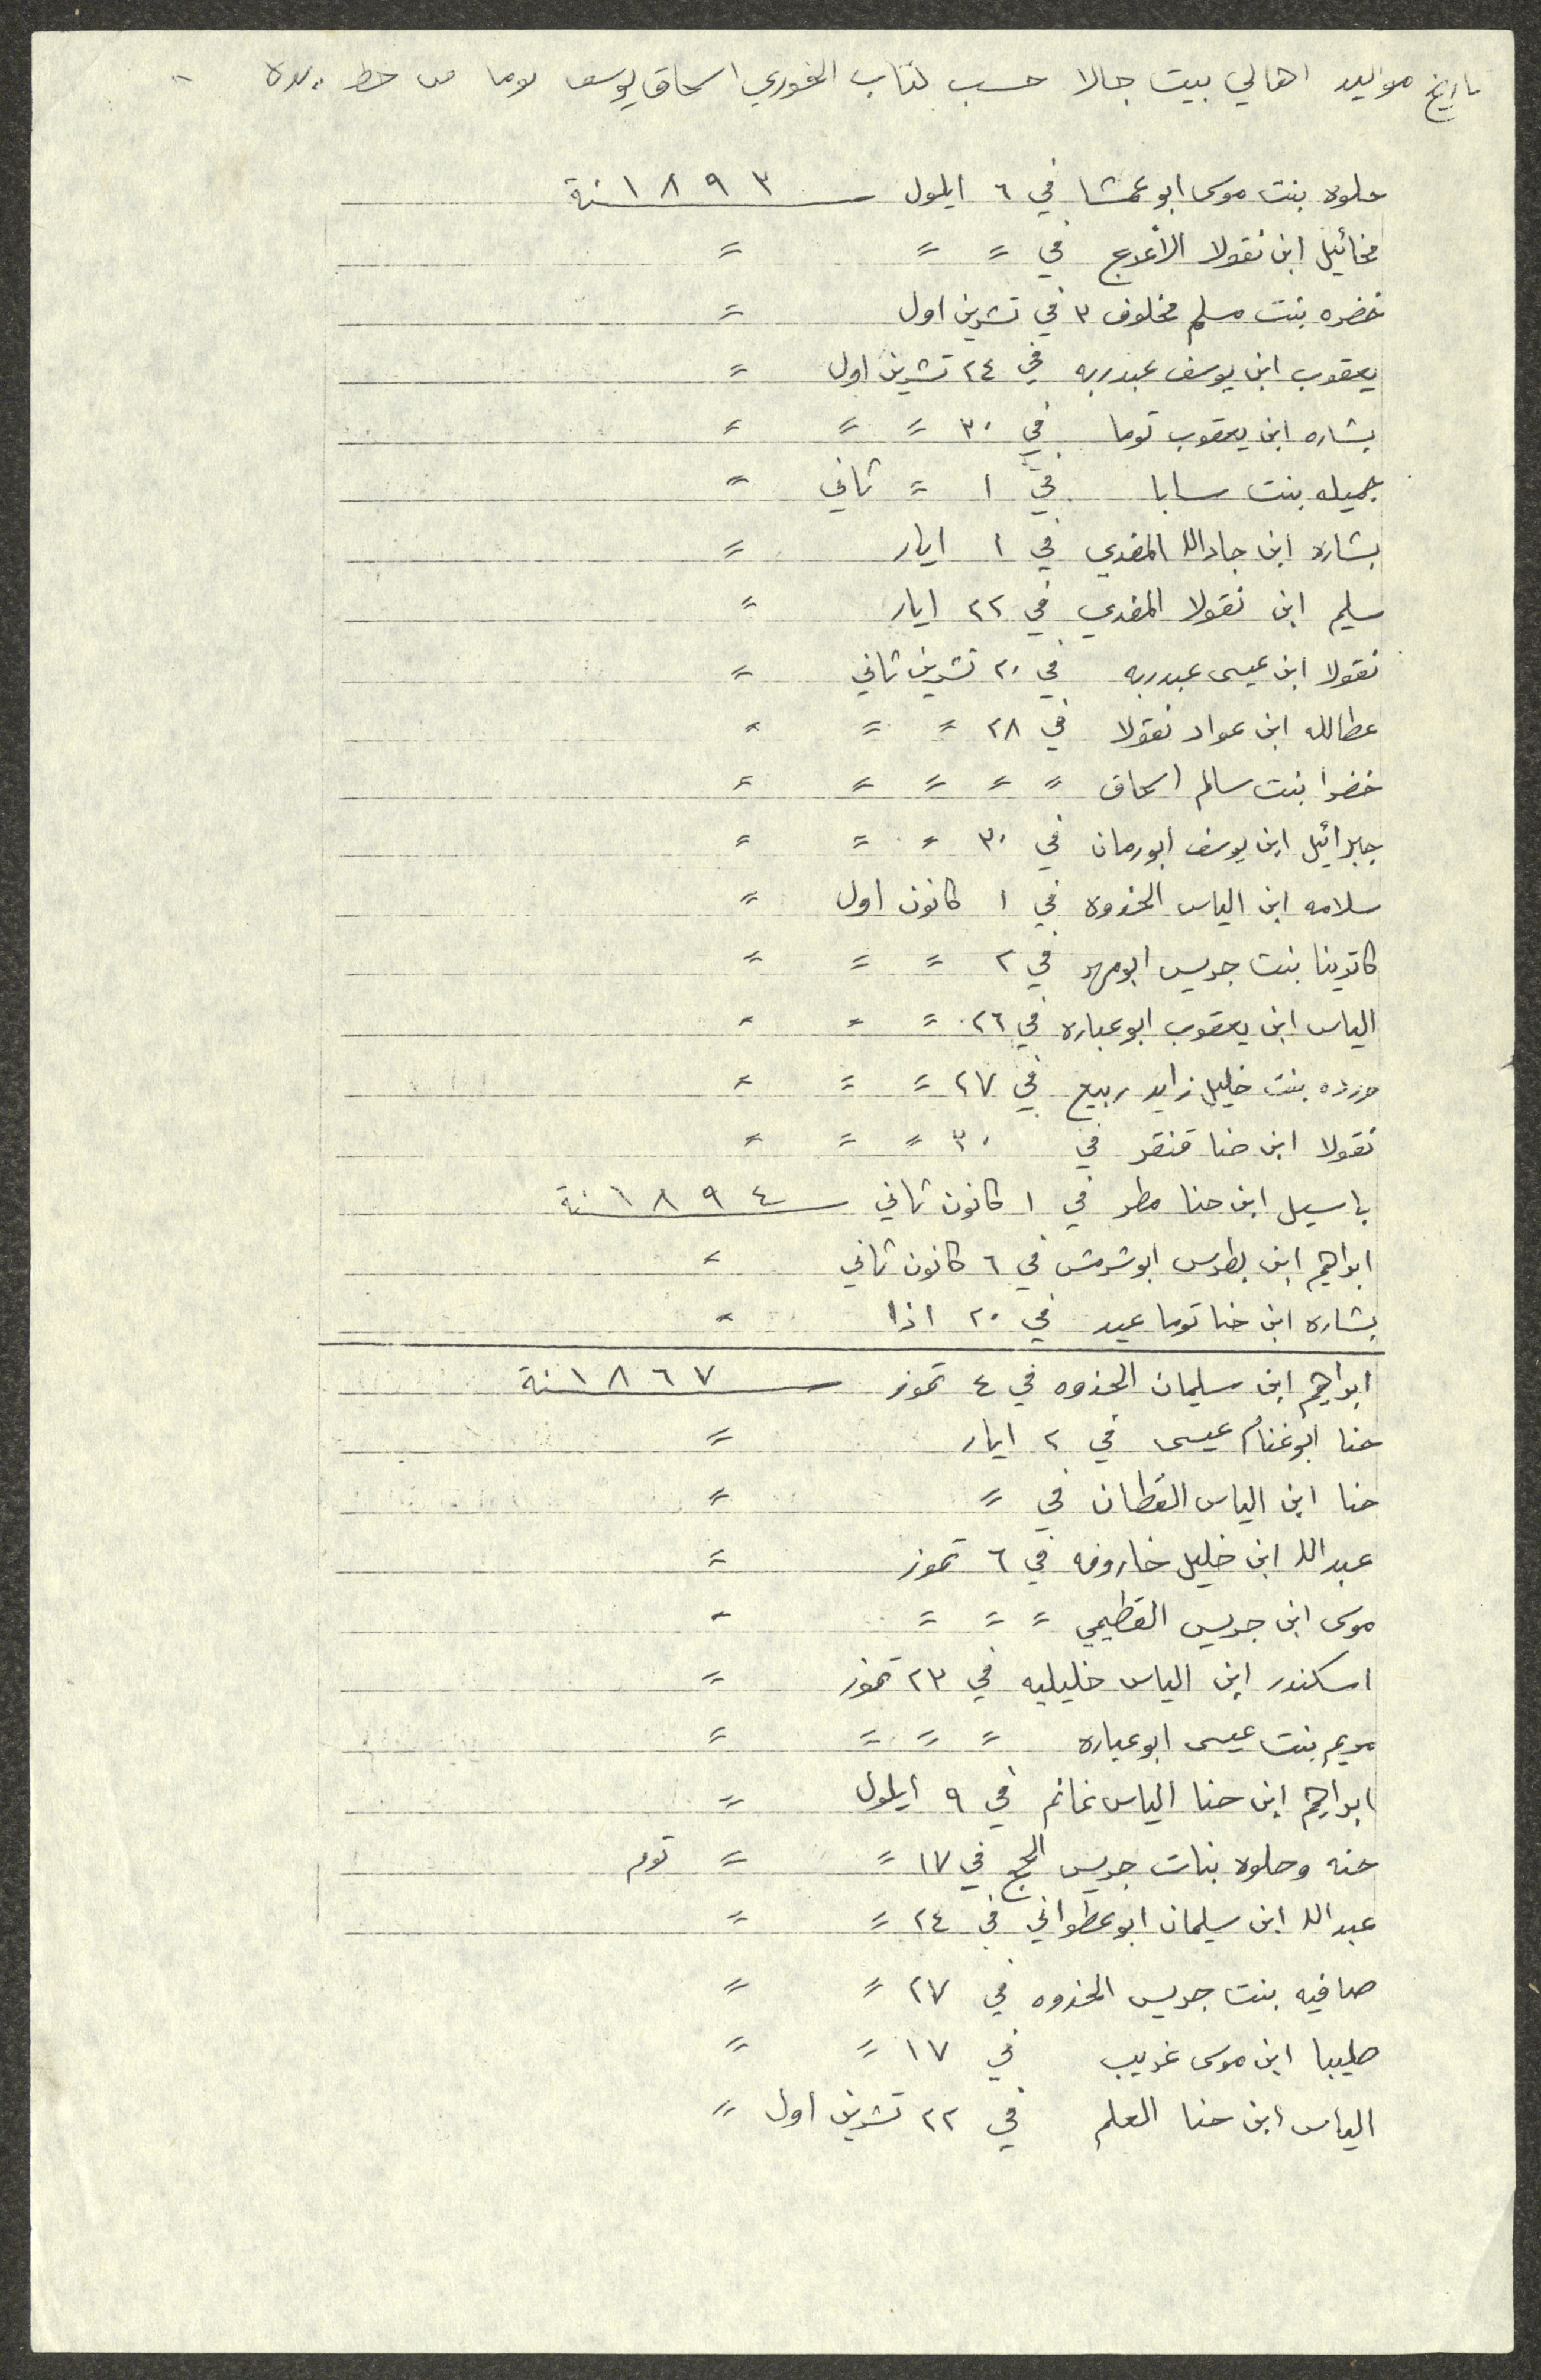 تاريخ مواليد اهالي بيت جالا حسب كتاب الخوري اسحاق يوسف توما من خط يده
حلوه بنت موسى ابو عمشا في ٦ ايلول سنة ١٨٩٣
مخائيل ابن نقولا الأعرج في = = =
خضره بنت مسلم مخلوف ٣ في تشرين اول =
يعقوب ابن يوسف عبدربه في ٢٤ تشرين اول =
بشاره ابن يعقوب توما في ٣٠ = = =
جميله بنت سابا في ١ = ثاني =
بشاره ابن جادالله المفدي في ١ ايار =
سليم ابن نقولا المفدي في ٢٢ ايار =
نقولا ابن عيسى عبدربه في ٢٠ تشرين ثاني =
عطالله ابن عواد نقولا في ٢٨ = = =
خضرا بنت سالم اسحاق = = = = =
جبرائيل ابن يوسف ابورمان في ٣٠ = = =
سلامه ابن الياس الخذوه في ١ كانون اول =
كاترينا بنت جريس ابومهر في ٢ = = =
الياس ابن يعقوب ابوعباره في ٢٦ = = =
ورده بنت خليل زايد ربيع في ٢٧ = = =
نقولا ابن حنا قنقر في ٣٠ = = =
باسيل ابن حنا مطر في ١ كانون ثاني سنة ١٨٩٤
ابراهيم ابن بطرس ابوشرمش في ٦ كانون ثاني =
بشاره ابن حنا توما عيد في ٢٠ اذا =
ابراهيم ابن سليمان الخذوه في ٤ تموز سنة ١٨٦٧
حنا ابوغنام عيسى في ٢ ايار =
حنا ابن الياس القطان في = =
عبدالله ابن خليل خاروفه في ٦ تموز =
موسى ابن جريس القطيمي = = = =
اسكندر ابن الياس خليليه في ٢٣ تموز =
مريم بنت عيسى ابوعباره = = = =
ابراهيم ابن حنا الياس غانم في ٩ ايلول =
حنه وحلوه بنات جريس الحج في ١٧ = = توم
عبدالله ابن سليمان ابوعطواني في ٢٤ = =
صافيه بنت جريس الخذوه في ٢٧ = =
صليبا ابن موسى غريب في ١٧ = =
الياس ابن حنا العلم في ٢٢ تشرين اول =